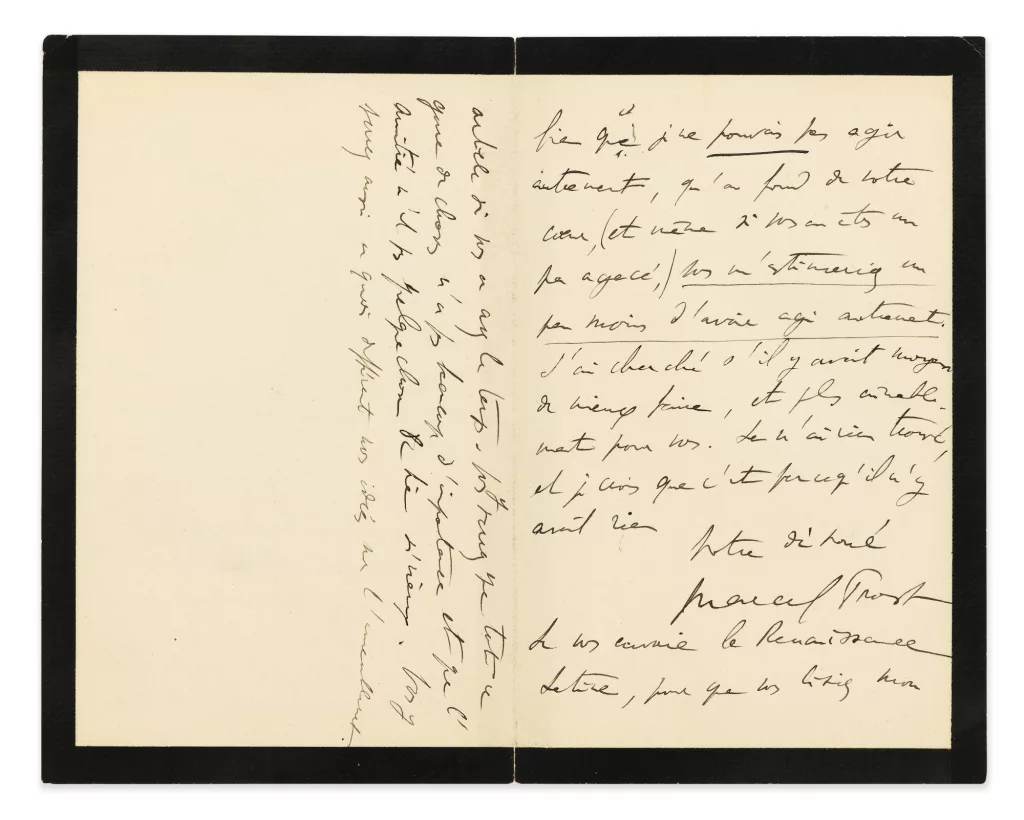 bien que je ne pouvais pas agir
autrement, qu'au fond de votre
cœur, (et même si vous en êtes un
peu agacé,) vous m'estimeriez un
peu moins d'avoir agi autrement.
J'ai cherché s'il y avait moyen
de mieux faire, et plus aimable-
ment pour vous. Je n'ai rien trouvé,
et je crois que c'est parce qu'il n'y
avait rien
Votre dévoué
Marcel Proust
Je vous envoie la Renaissance
Latine, pour que vous lisiez mon
article si vous en avez le temps. Vous y verrez que tout ce
genre de choses n'a pas beaucoup d'importance et que l'
amitié a quelque chose de
verrez aussi en quoi diffèrent nos idées sur l'ameublement.